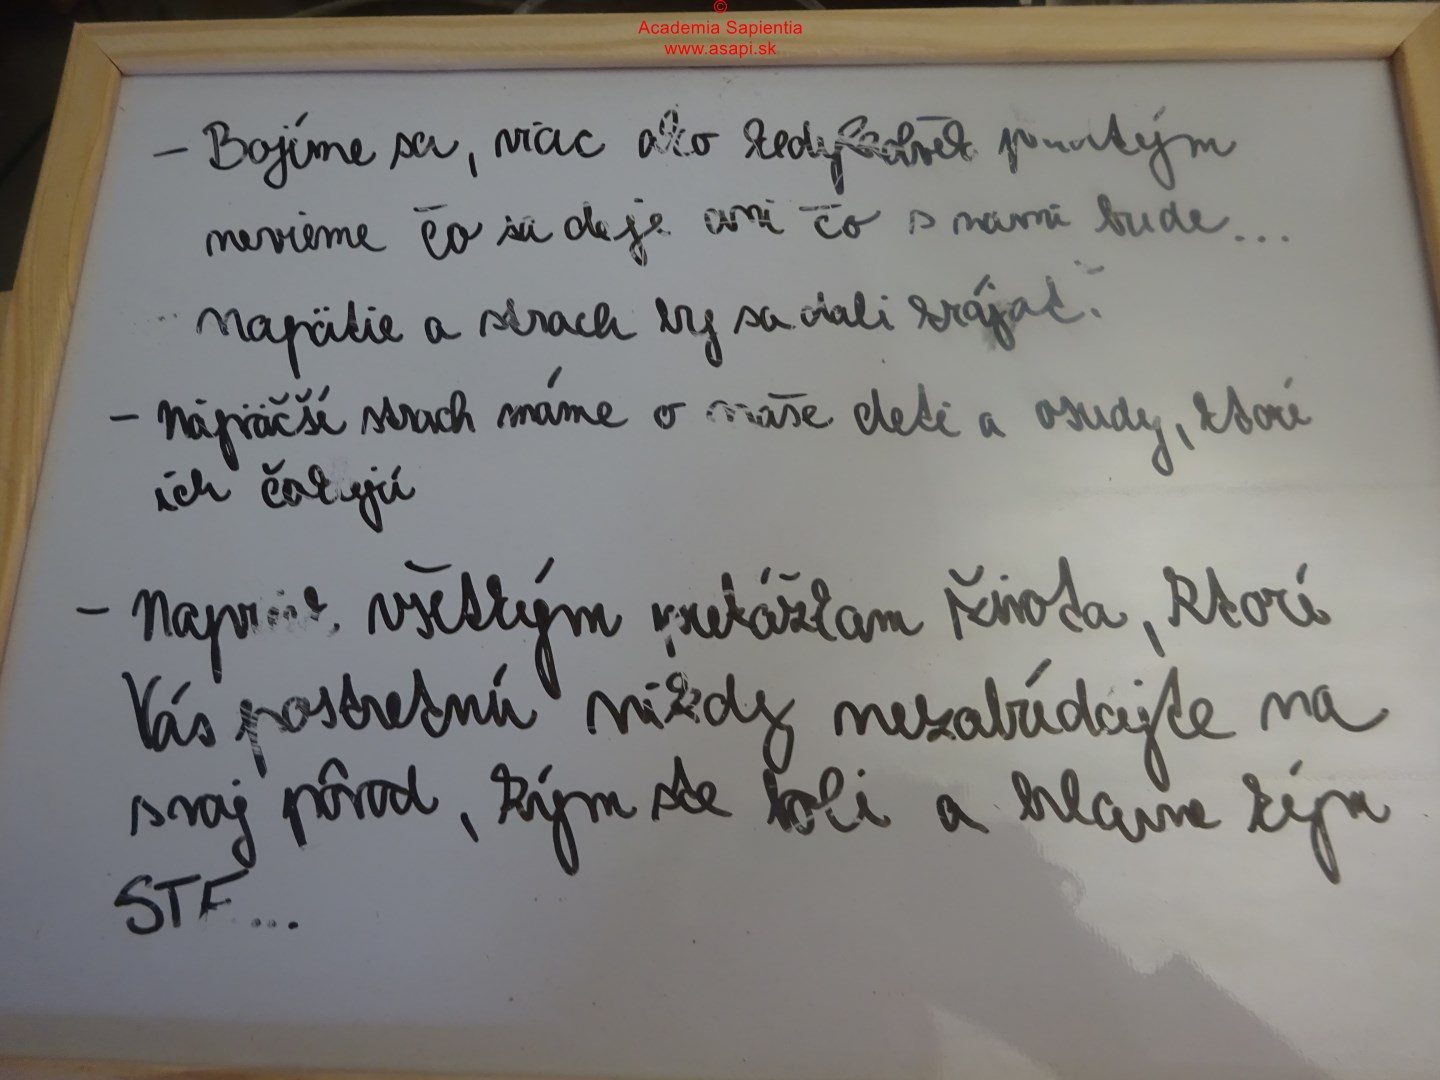 ©
Academia Sapientia
www.asapi.sk
- Bojíme sa, viac ako kedykoľvek
nevieme čo sa deje ani čo s nami bude...
Napätie a strach by sa dali krájať.
- Najväčší strach máme o naše deti a osudy, ktoré
ich čakajú
- Napriek všetkým prekážkam života, ktoré
Vás postretnú nikdy nezabúdajte na
svoj pôvod, kým ste boli a hlavne kým
STE...